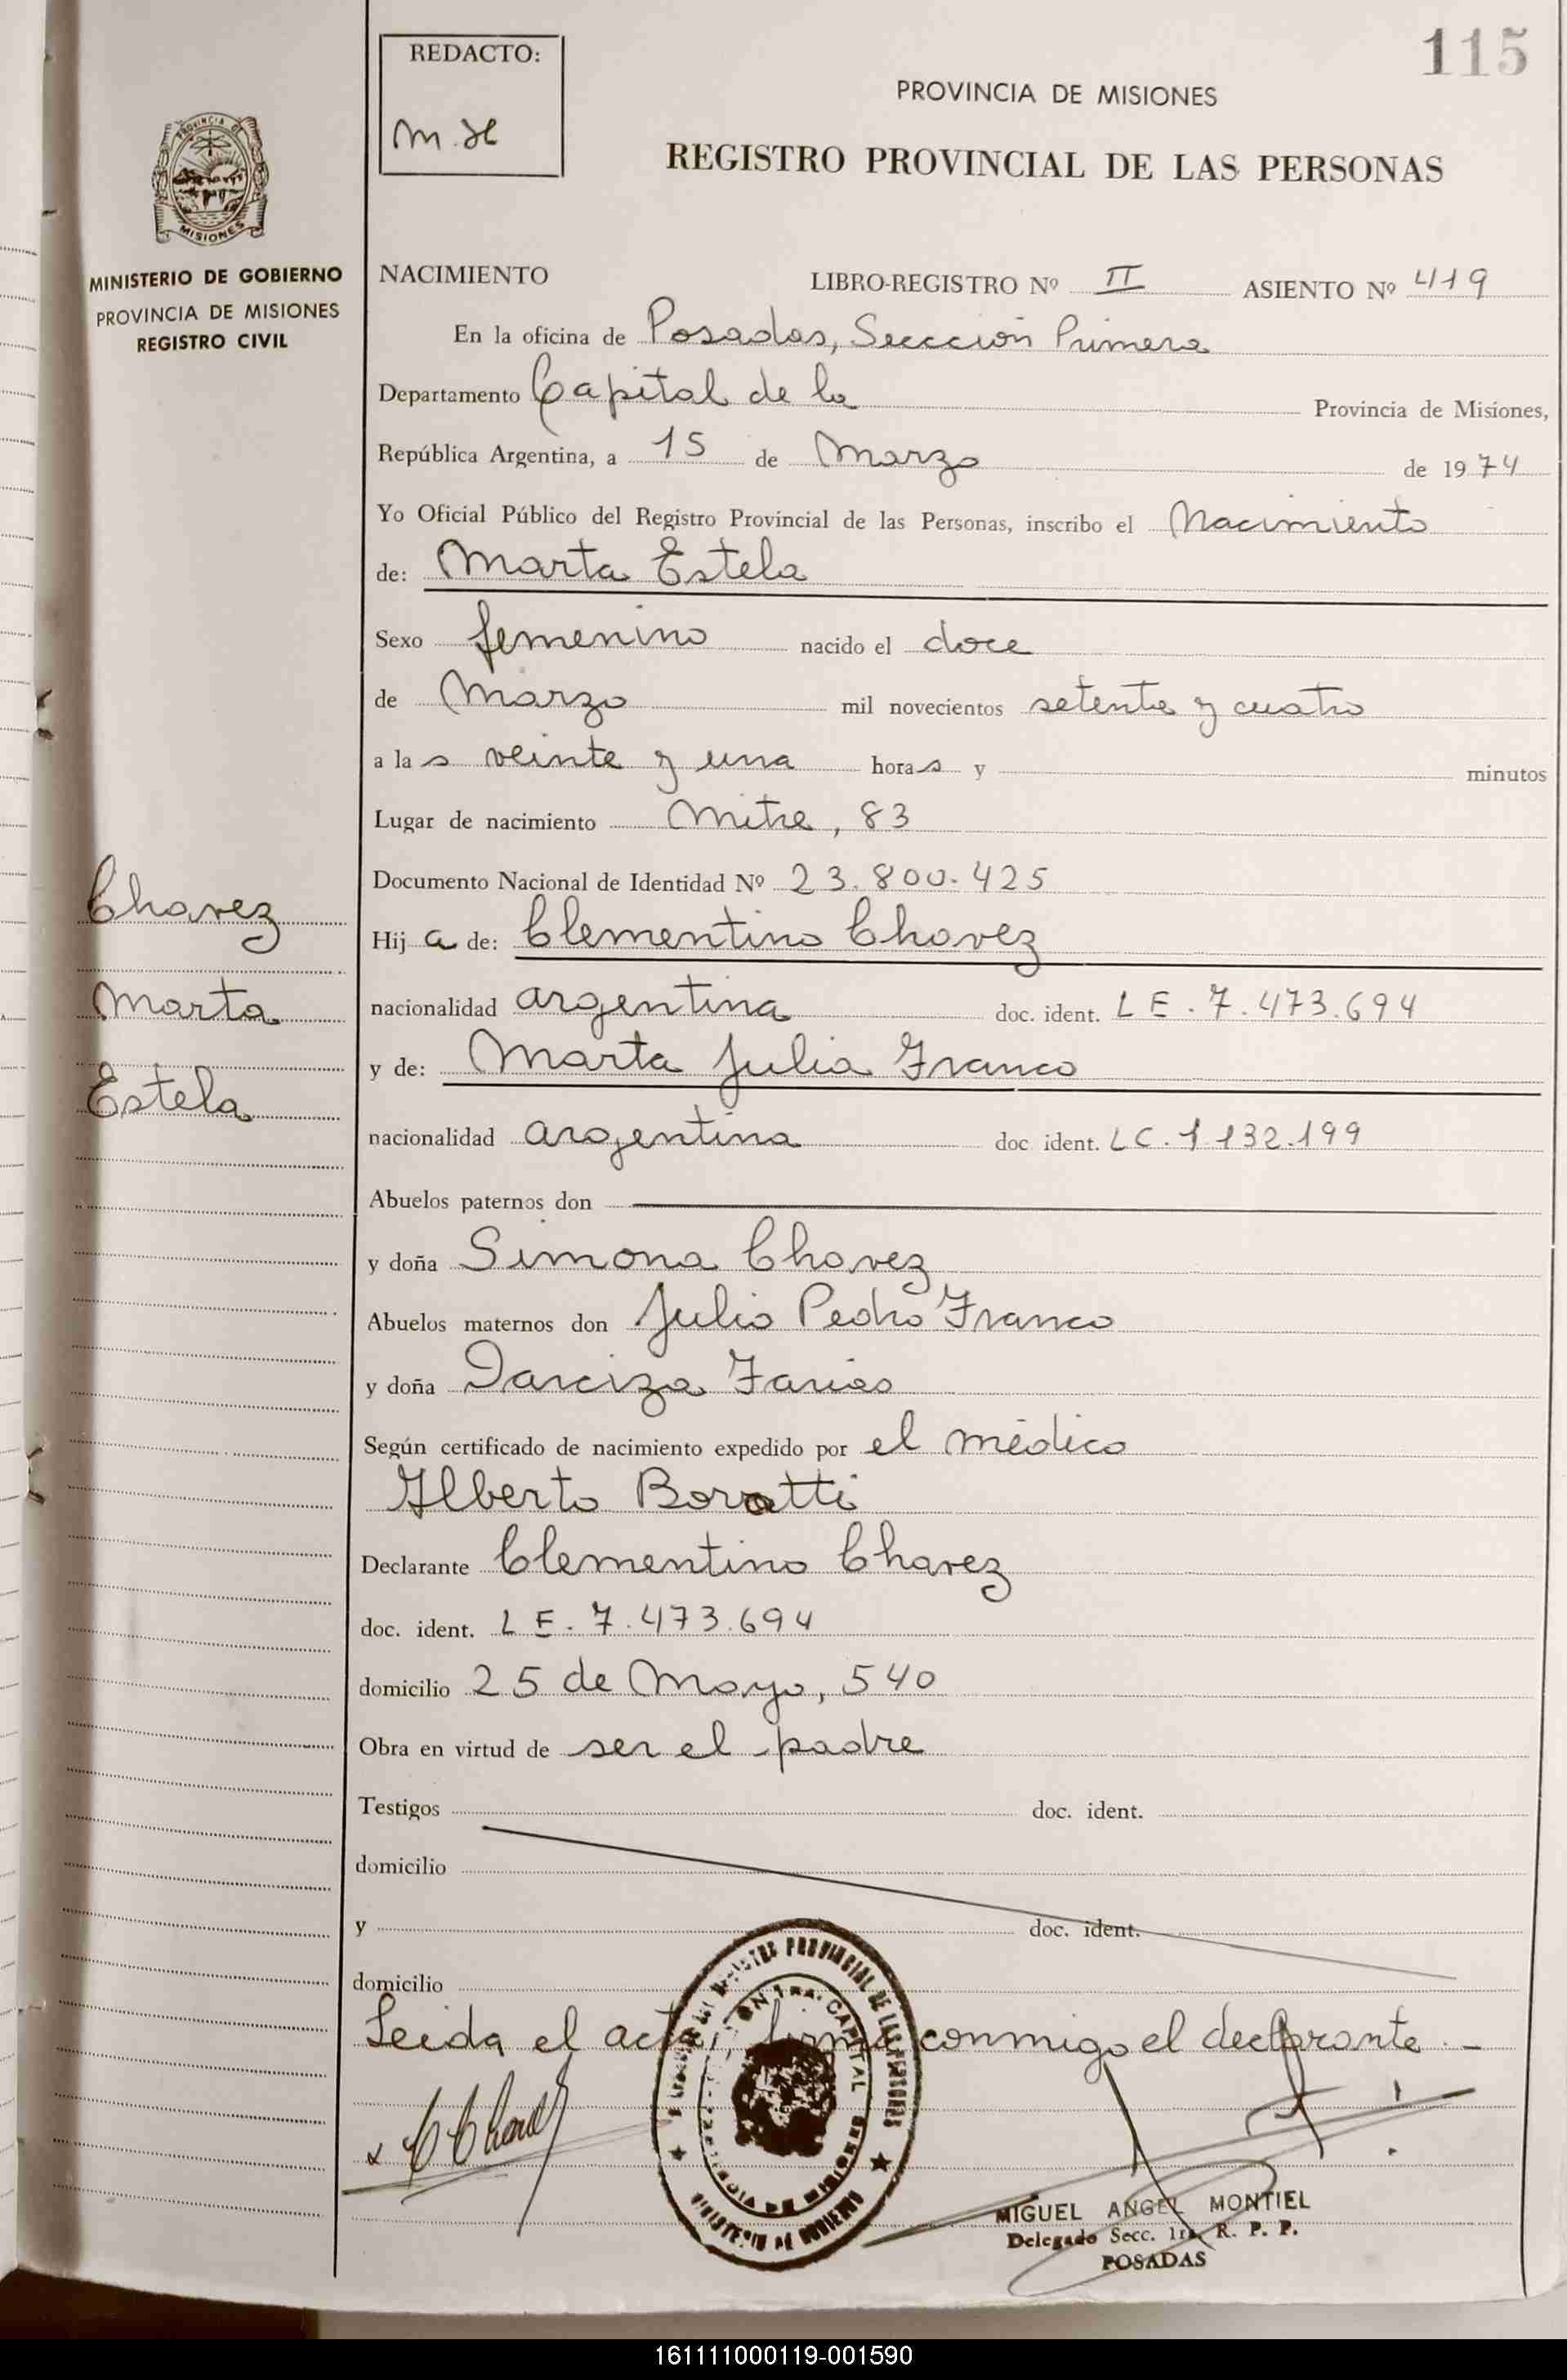 115
REDACTO:
m.H
PROVINCIA DE MISIONES
REGISTRO PROVINCIAL DE LAS PERSONAS
PROVINCIA DE
MISIONES
MINISTERIO DE GOBIERNO
PROVINCIA DE MISIONES
REGISTRO CIVIL
NACIMIENTO LIBRO-REGISTRO Nº II ASIENTO Nº 419
En la oficina de Posadas, Seccción Primera
Departamento Capital de la Provincia de Misiones,
República Argentina, a 15 de Marzo de 1974
Yo Oficial Público del Registro Provincial de las Personas, inscribo el Nacimiento
de: Marta Estela
Sexo femenino nacido el doce
de Marzo mil novecientos setenta y cuatro
a las veinte y una horas y minutos
Lugar de nacimiento Mitre, 83
Documento Nacional de Identidad Nº 23.800.425
Chavez
Marta
Estela
Hija de: Clementino Chavez
nacionalidad argentina doc. ident. LE. 7.473.694
y de: Marta Julia Franco
nacionalidad argentina doc ident. LC. 1 132.199
Abuelos paternos don
y doña Simona Chavez
Abuelos maternos don Julio Pedro Franco
y doña Farias
Según certificado de nacimiento expedido por el médico
Alberto Boratti
Declarante Clementino Chavez
doc. ident. LE. 7.473.694
domicilio 25 de Mayo, 540
Obra en virtud de ser el padre
Testigos doc. ident.
domicilio
y doc. ident.
domicilio
Leida el acta, firma conmigo el declarante.-
MIGUEL ANGEL MONTIEL
Delegado Secc. 1ra. R. P. P.
POSADAS
161111000119-001590